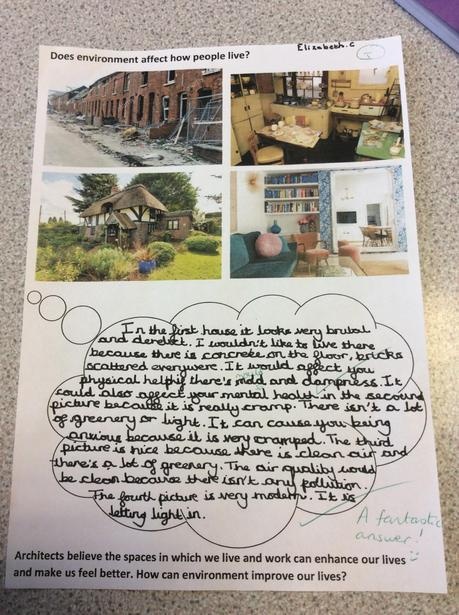 Does environment affect how people live?
Elizabeth.C
In the first house it looks very brutal
and derelict. I wouldn't like to live there
because there is concrete on the floor, bricks
scattered everywere. It would affect you
physical helth if there's and dampness. It
could also affect your mental health in the second
picture because it is really cramp. There isn't a lot
of greenery or light. It can cause you being
anxious because it is very cramped. The third
picture is nice because there is clean air and
there's a lot of greenery. The air quality would
be clean because there isn't any pollution.
The fourth picture is very modern. It is
letting light in.
A fantastic
answer!
Architects believe the spaces in which we live and work can enhance our lives
and make us feel better. How can environment improve our lives?